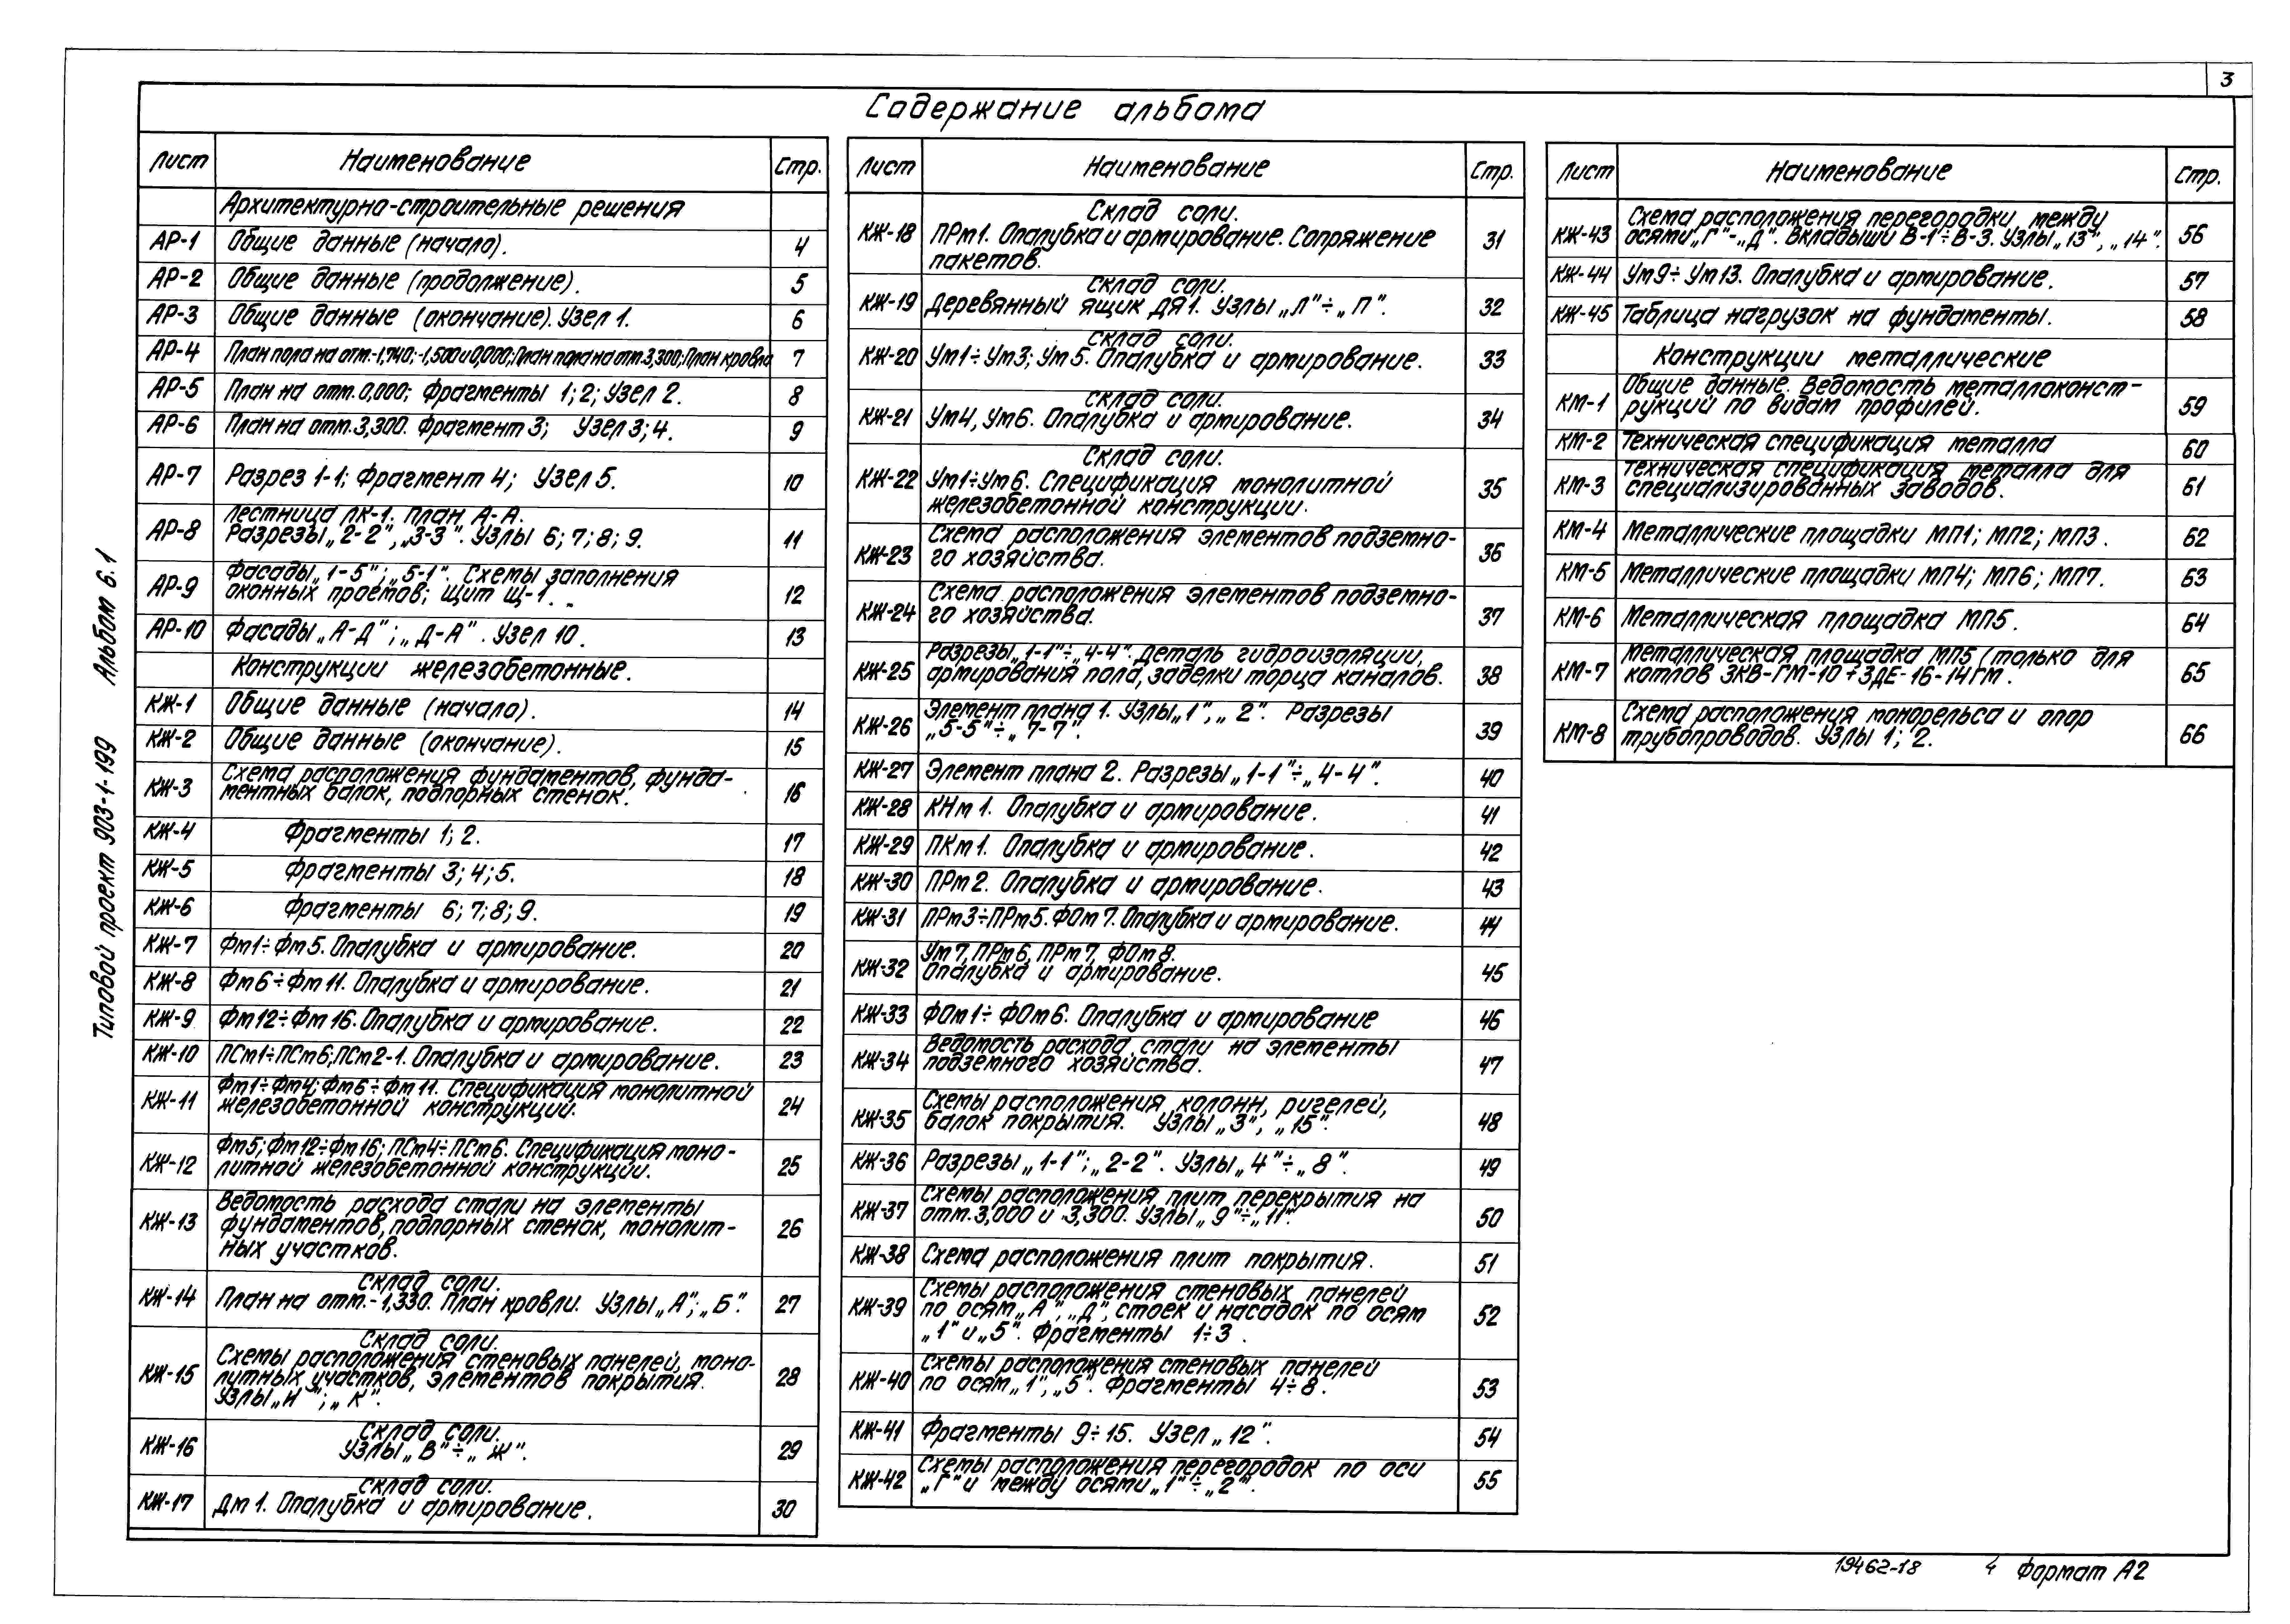 3
Содержание альбома
Лист Наименование Стр.
Архитектурно-строительные решения
АР-1 Общие данные (начало). 4
АР-2 Общие данные (продолжение). 5
АР-3 Общие данные (окончание). Узел 1. 6
АР-4 План пола на отм.-1,740; -1,500 и 0,000; План пола на отм. 3,300; План кровли 7
АР-5 План на отм. 0,000; Фрагменты 1; 2; Узел 2. 8
АР-6 План на отм. 3,300. Фрагмент 3; Узел 3; 4. 9
АР-7 Разрез 1-1; Фрагмент 4; Узел 5. 10
Лестница ЛК-1, план А-А.
АР-8 Разрезы „2-2", „3-3". Узлы 6; 7; 8; 9. 11
Фасады „1-5"; „5-1". Схемы заполнения
АР-9 оконных проемов; Щит Щ-1. 12
АР-10 Фасады „А-Д"; „Д-А". Узел 10. 13
Конструкции железобетонные.
КЖ-1 Общие данные (начало). 14
КЖ-2 Общие данные (окончание). 15
Схема расположения фундаментов, фунда-
КЖ-3 ментных балок, подпорных стенок. 16
КЖ-4 Фрагменты 1; 2. 17
КЖ-5 Фрагменты 3; 4; 5. 18
КЖ-6 Фрагменты 6; 7; 8; 9. 19
КЖ-7 Фм1÷Фм5. Опалубка и армирование. 20
КЖ-8 Фм6÷Фм11. Опалубка и армирование. 21
КЖ-9 Фм12÷Фм16. Опалубка и армирование. 22
КЖ-10 ПСм1÷ПСм6; ПСм2-1. Опалубка и армирование. 23
Фм1÷Фм4; Фм6÷Фм11. Спецификация монолитной
КЖ-11 железобетонной конструкций. 24
Фм5; Фм12÷Фм16; ПСм4÷ПСм6. Спецификация моно-
КЖ-12 литной железобетонной конструкции. 25
Ведомость расхода стали на элементы
КЖ-13 фундаментов, подпорных стенок, монолит- 26
ных участков.
Склад соли.
КЖ-14 План на отм.-1,330. План кровли. Узлы „А"; „Б". 27
Склад соли.
Схемы расположения стеновых панелей, моно-
КЖ-15 литных участков, элементов покрытия. 28
Узлы „И"; „К".
Склад соли.
КЖ-16 Узлы „В"÷„Ж". 29
Склад соли.
КЖ-17 Дм 1. Опалубка и армирование. 30
Лист Наименование Стр.
Склад соли.
КЖ-18 ПРм1. Опалубка и армирование. Сопряжение 31
пакетов.
Склад соли.
КЖ-19 Деревянный ящик ДЯ1. Узлы „Л"÷„П". 32
Склад соли.
КЖ-20 Ум1÷Ум3; Ум5. Опалубка и армирование. 33
Склад соли.
КЖ-21 Ум4, Ум6. Опалубка и армирование. 34
Склад соли.
КЖ-22 Ум1÷Ум6. Спецификация монолитной 35
железобетонной конструкции.
Схема расположения элементов подземно-
КЖ-23 го хозяйства. 36
Схема расположения элементов подземно-
КЖ-24 го хозяйства. 37
Разрезы „1-1"÷„4-4". Деталь гидроизоляции,
КЖ-25 армирования пола, заделки торца каналов. 38
Элемент плана 1. Узлы „1", „2". Разрезы
КЖ-26 „5-5"÷„7-7". 39
КЖ-27 Элемент плана 2. Разрезы „1-1"÷„4-4". 40
КЖ-28 КНм 1. Опалубка и армирование. 41
КЖ-29 ПКм 1. Опалубка и армирование. 42
КЖ-30 ПРм 2. Опалубка и армирование. 43
КЖ-31 ПРм3÷ПРм5. ФОм 7. Опалубка и армирование. 44
Ум7, ПРм6, ПРм7, ФОм8.
КЖ-32 Опалубка и армирование. 45
КЖ-33 ФОм1÷ФОм6. Опалубка и армирование 46
Ведомость расхода стали на элементы
КЖ-34 подземного хозяйства. 47
Схемы расположения колонн, ригелей,
КЖ-35 балок покрытия. Узлы „3", „15". 48
КЖ-36 Разрезы „1-1"; „2-2". Узлы „4"÷„8". 49
Схемы расположения плит перекрытия на
КЖ-37 отм. 3,000 и 3,300. Узлы „9"÷„11". 50
КЖ-38 Схема расположения плит покрытия. 51
Схемы расположения стеновых панелей
КЖ-39 по осям „А", „Д", стоек и насадок по осям 52
„1" и „5". Фрагменты 1÷3.
Схемы расположения стеновых панелей
КЖ-40 по осям „1", „5". Фрагменты 4÷8. 53
КЖ-41 Фрагменты 9÷15. Узел „12". 54
Схемы расположения перегородок по оси
КЖ-42 „Г" и между осями „1"÷„2". 55
Лист Наименование Стр.
Схема расположения перегородки между
КЖ-43 осями „Г"-„Д". Вкладыши В-1÷В-3. Узлы „13", „14". 56
КЖ-44 Ум9÷Ум13. Опалубка и армирование. 57
КЖ-45 Таблица нагрузок на фундаменты. 58
Конструкции металлические
Общие данные. Ведомость металлоконст-
КМ-1 рукций по видам профилей. 59
КМ-2 Техническая спецификация металла 60
Техническая спецификация металла для
КМ-3 специализированных заводов. 61
КМ-4 Металлические площадки МП1; МП2; МП3. 62
КМ-5 Металлические площадки МП4; МП6; МП7. 63
КМ-6 Металлическая площадка МП5. 64
Металлическая площадка МП5 (только для
КМ-7 котлов 3КВ-ГМ-10+3ДЕ-16-14ГМ. 65
Схема расположения монорельса и опор
КМ-8 трубопроводов. Узлы 1; 2. 66
Типовой проект 903-1-199 Альбом 6.1
19462-18 4 Формат А2